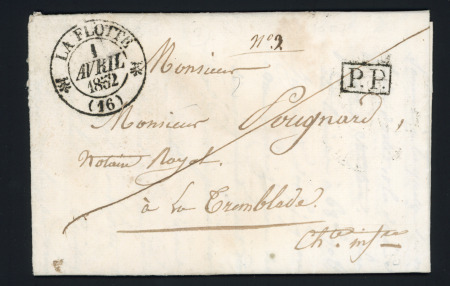 LA FLOTTE
1
AVRIL
1832
(16)
N° 9.
Monsieur
P.P.
Monsieur Pougnard,
Notaire Royal
à la Tremblade
Chte infre